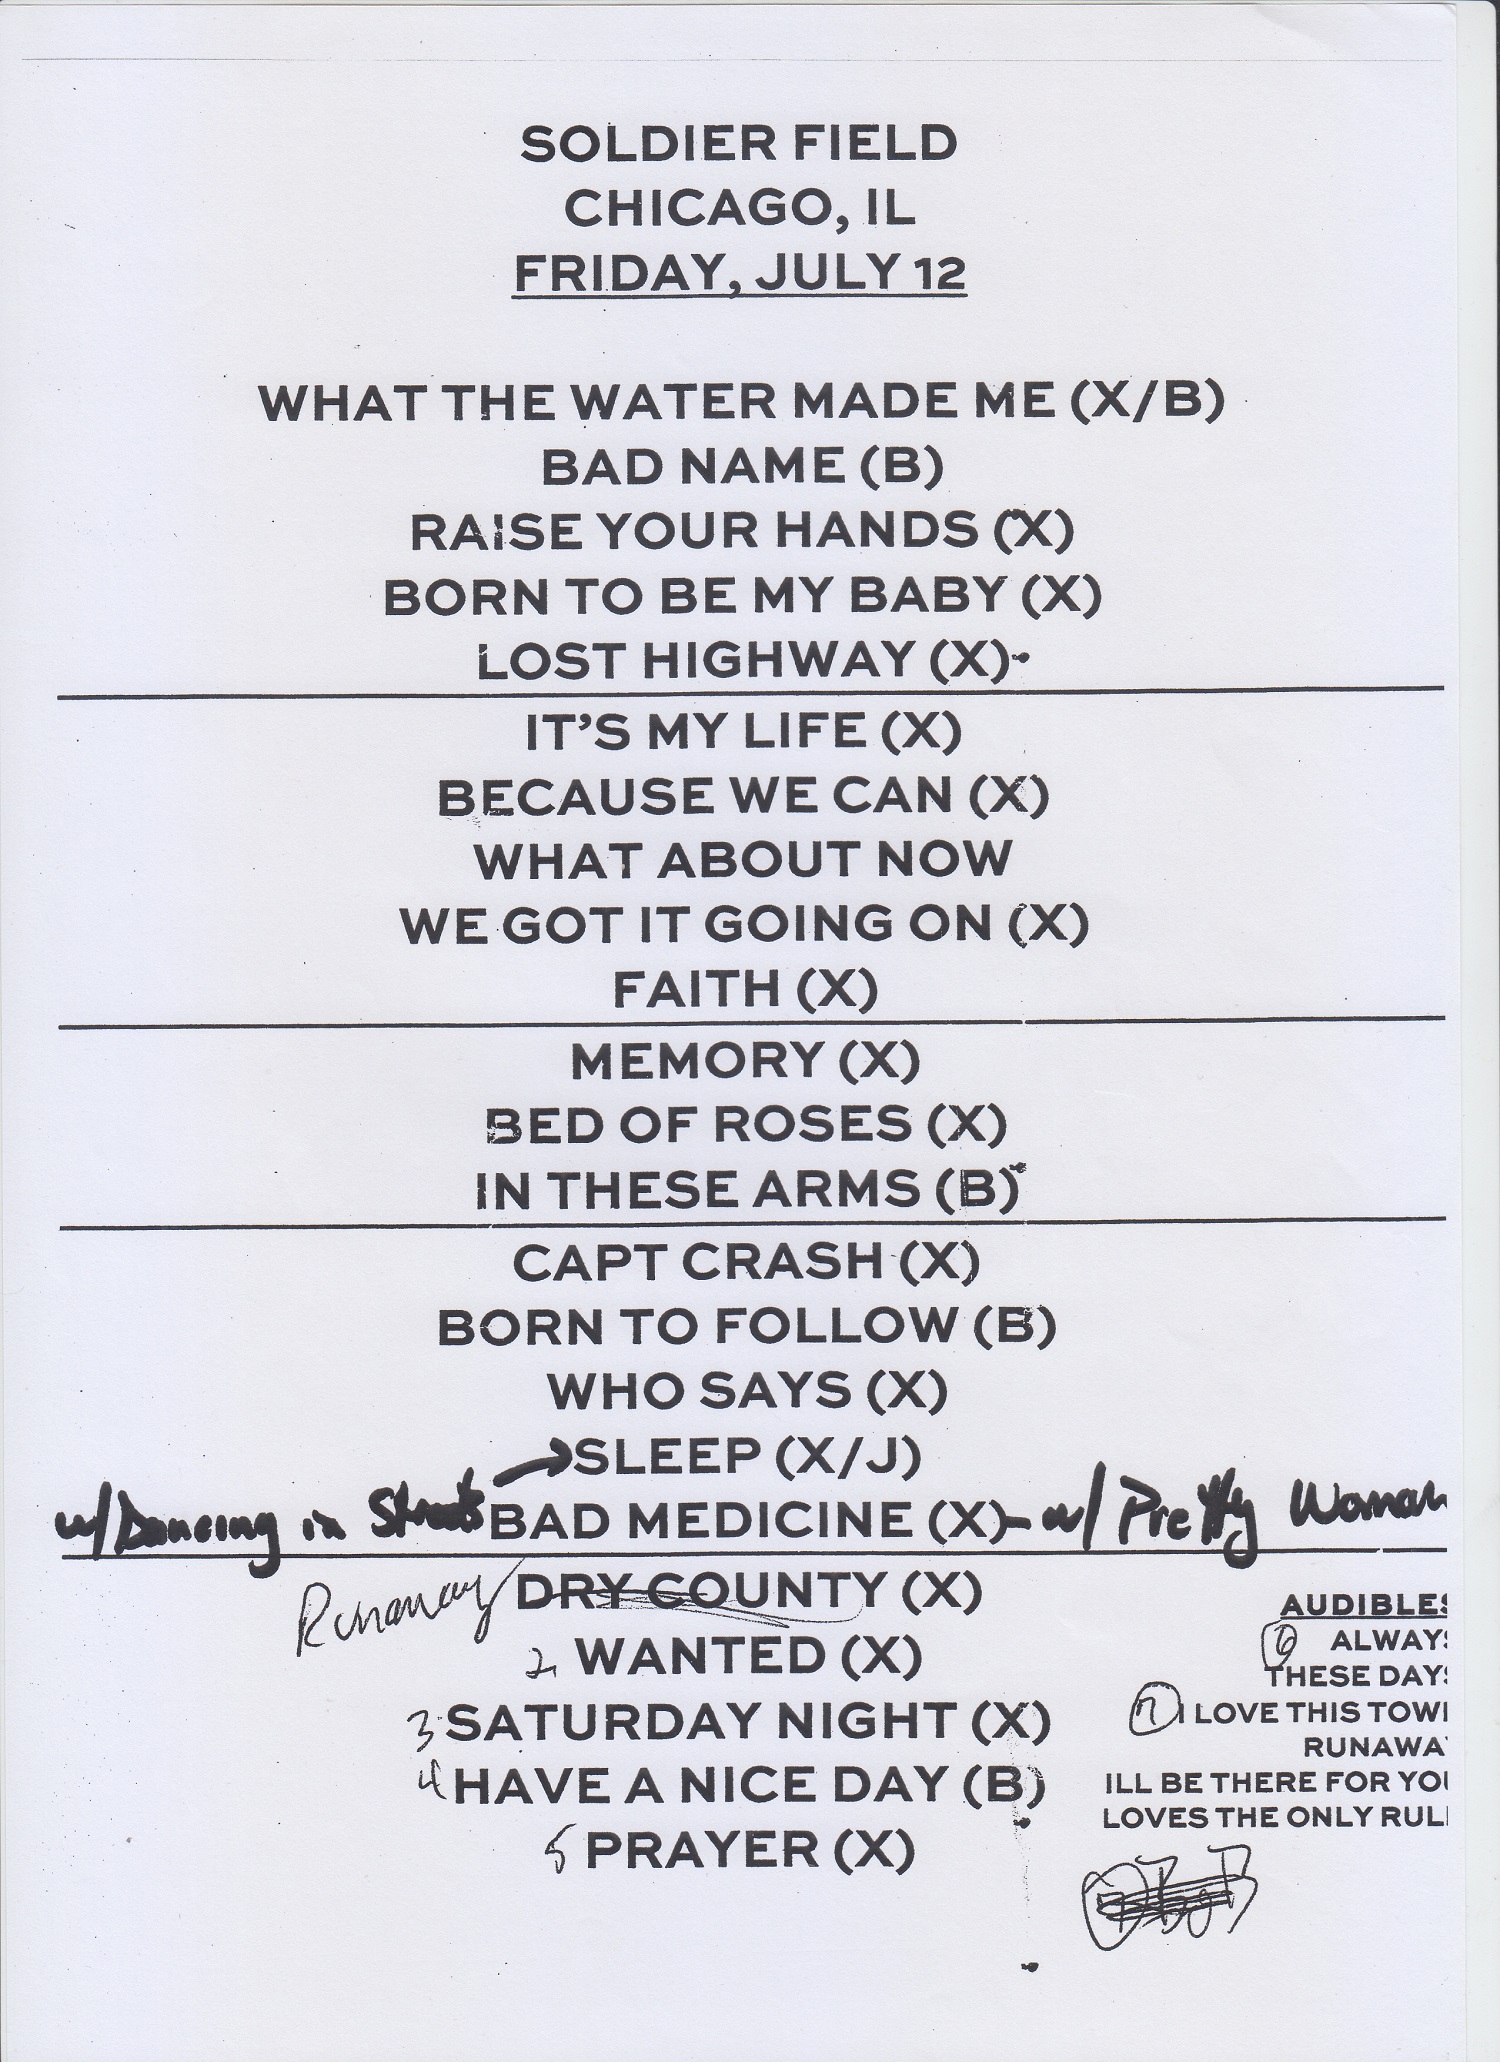 SOLDIER FIELD
CHICAGO, IL
FRIDAY, JULY 12
WHAT THE WATER MADE ME (X/B)
BAD NAME (B)
RAISE YOUR HANDS (X)
BORN TO BE MY BABY (X)
LOST HIGHWAY (X)
IT'S MY LIFE (X)
BECAUSE WE CAN (X)
WHAT ABOUT NOW
WE GOT IT GOING ON (X)
FAITH (X)
MEMORY (X)
BED OF ROSES (X)
IN THESE ARMS (B)
CAPT CRASH (X)
BORN TO FOLLOW (B)
WHO SAYS (X)
→SLEEP (X/J)
w/ Dancing in Streets BAD MEDICINE (X) - w/ Pretty Woman
Runaway DRY COUNTY (X)
2, WANTED (X)
3 SATURDAY NIGHT (X)
4 HAVE A NICE DAY (B)
5 PRAYER (X)
AUDIBLES
6 ALWAYS
THESE DAYS
7 I LOVE THIS TOWN
RUNAWAY
ILL BE THERE FOR YOU
LOVES THE ONLY RULE